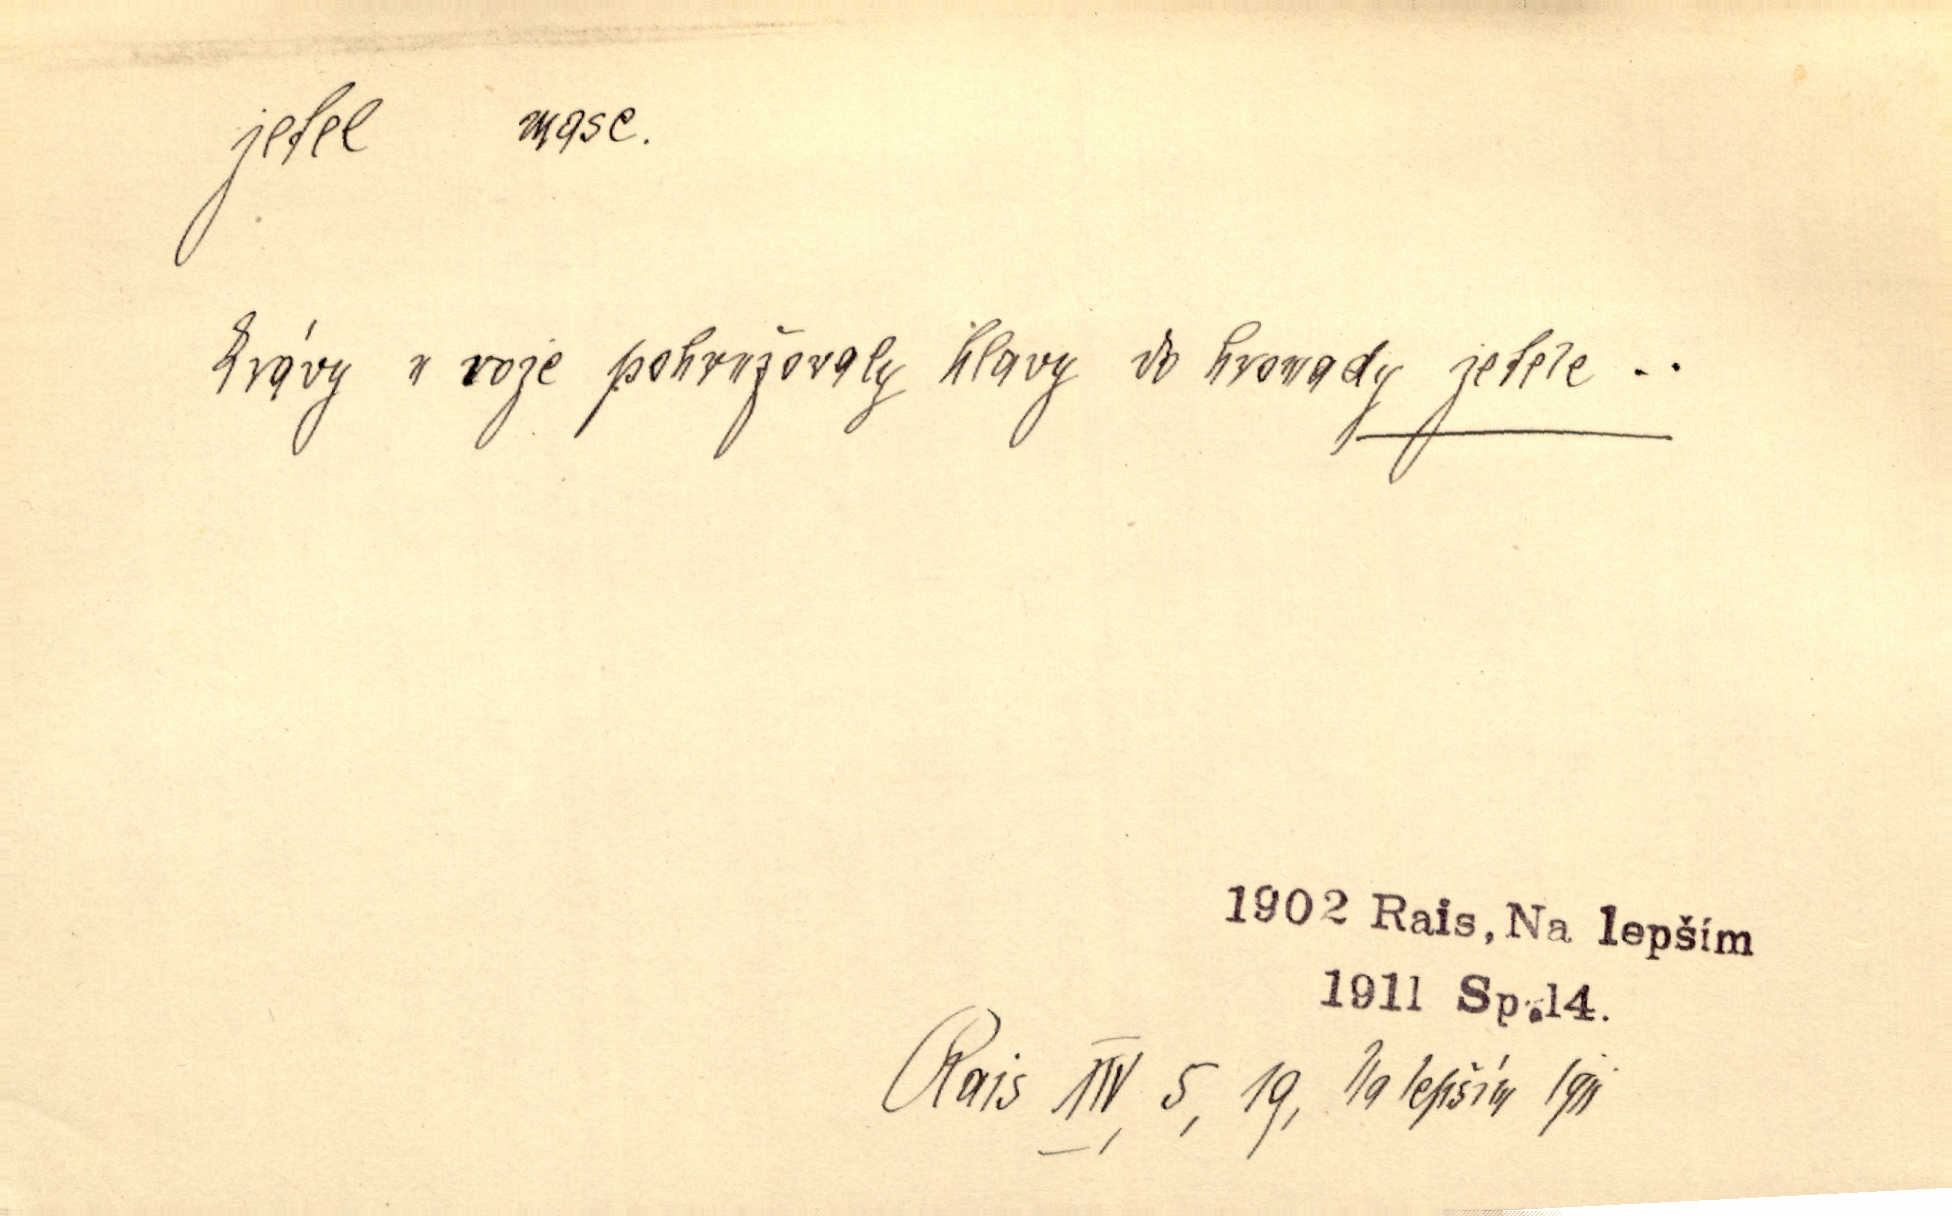 jetel masc.
Krávy u voje pohružovaly hlavy do hromady jetele ..
1902 Rais, Na lepším
1911 Sp. 14.
Rais XIV, 5, 19, Na lepším 1911